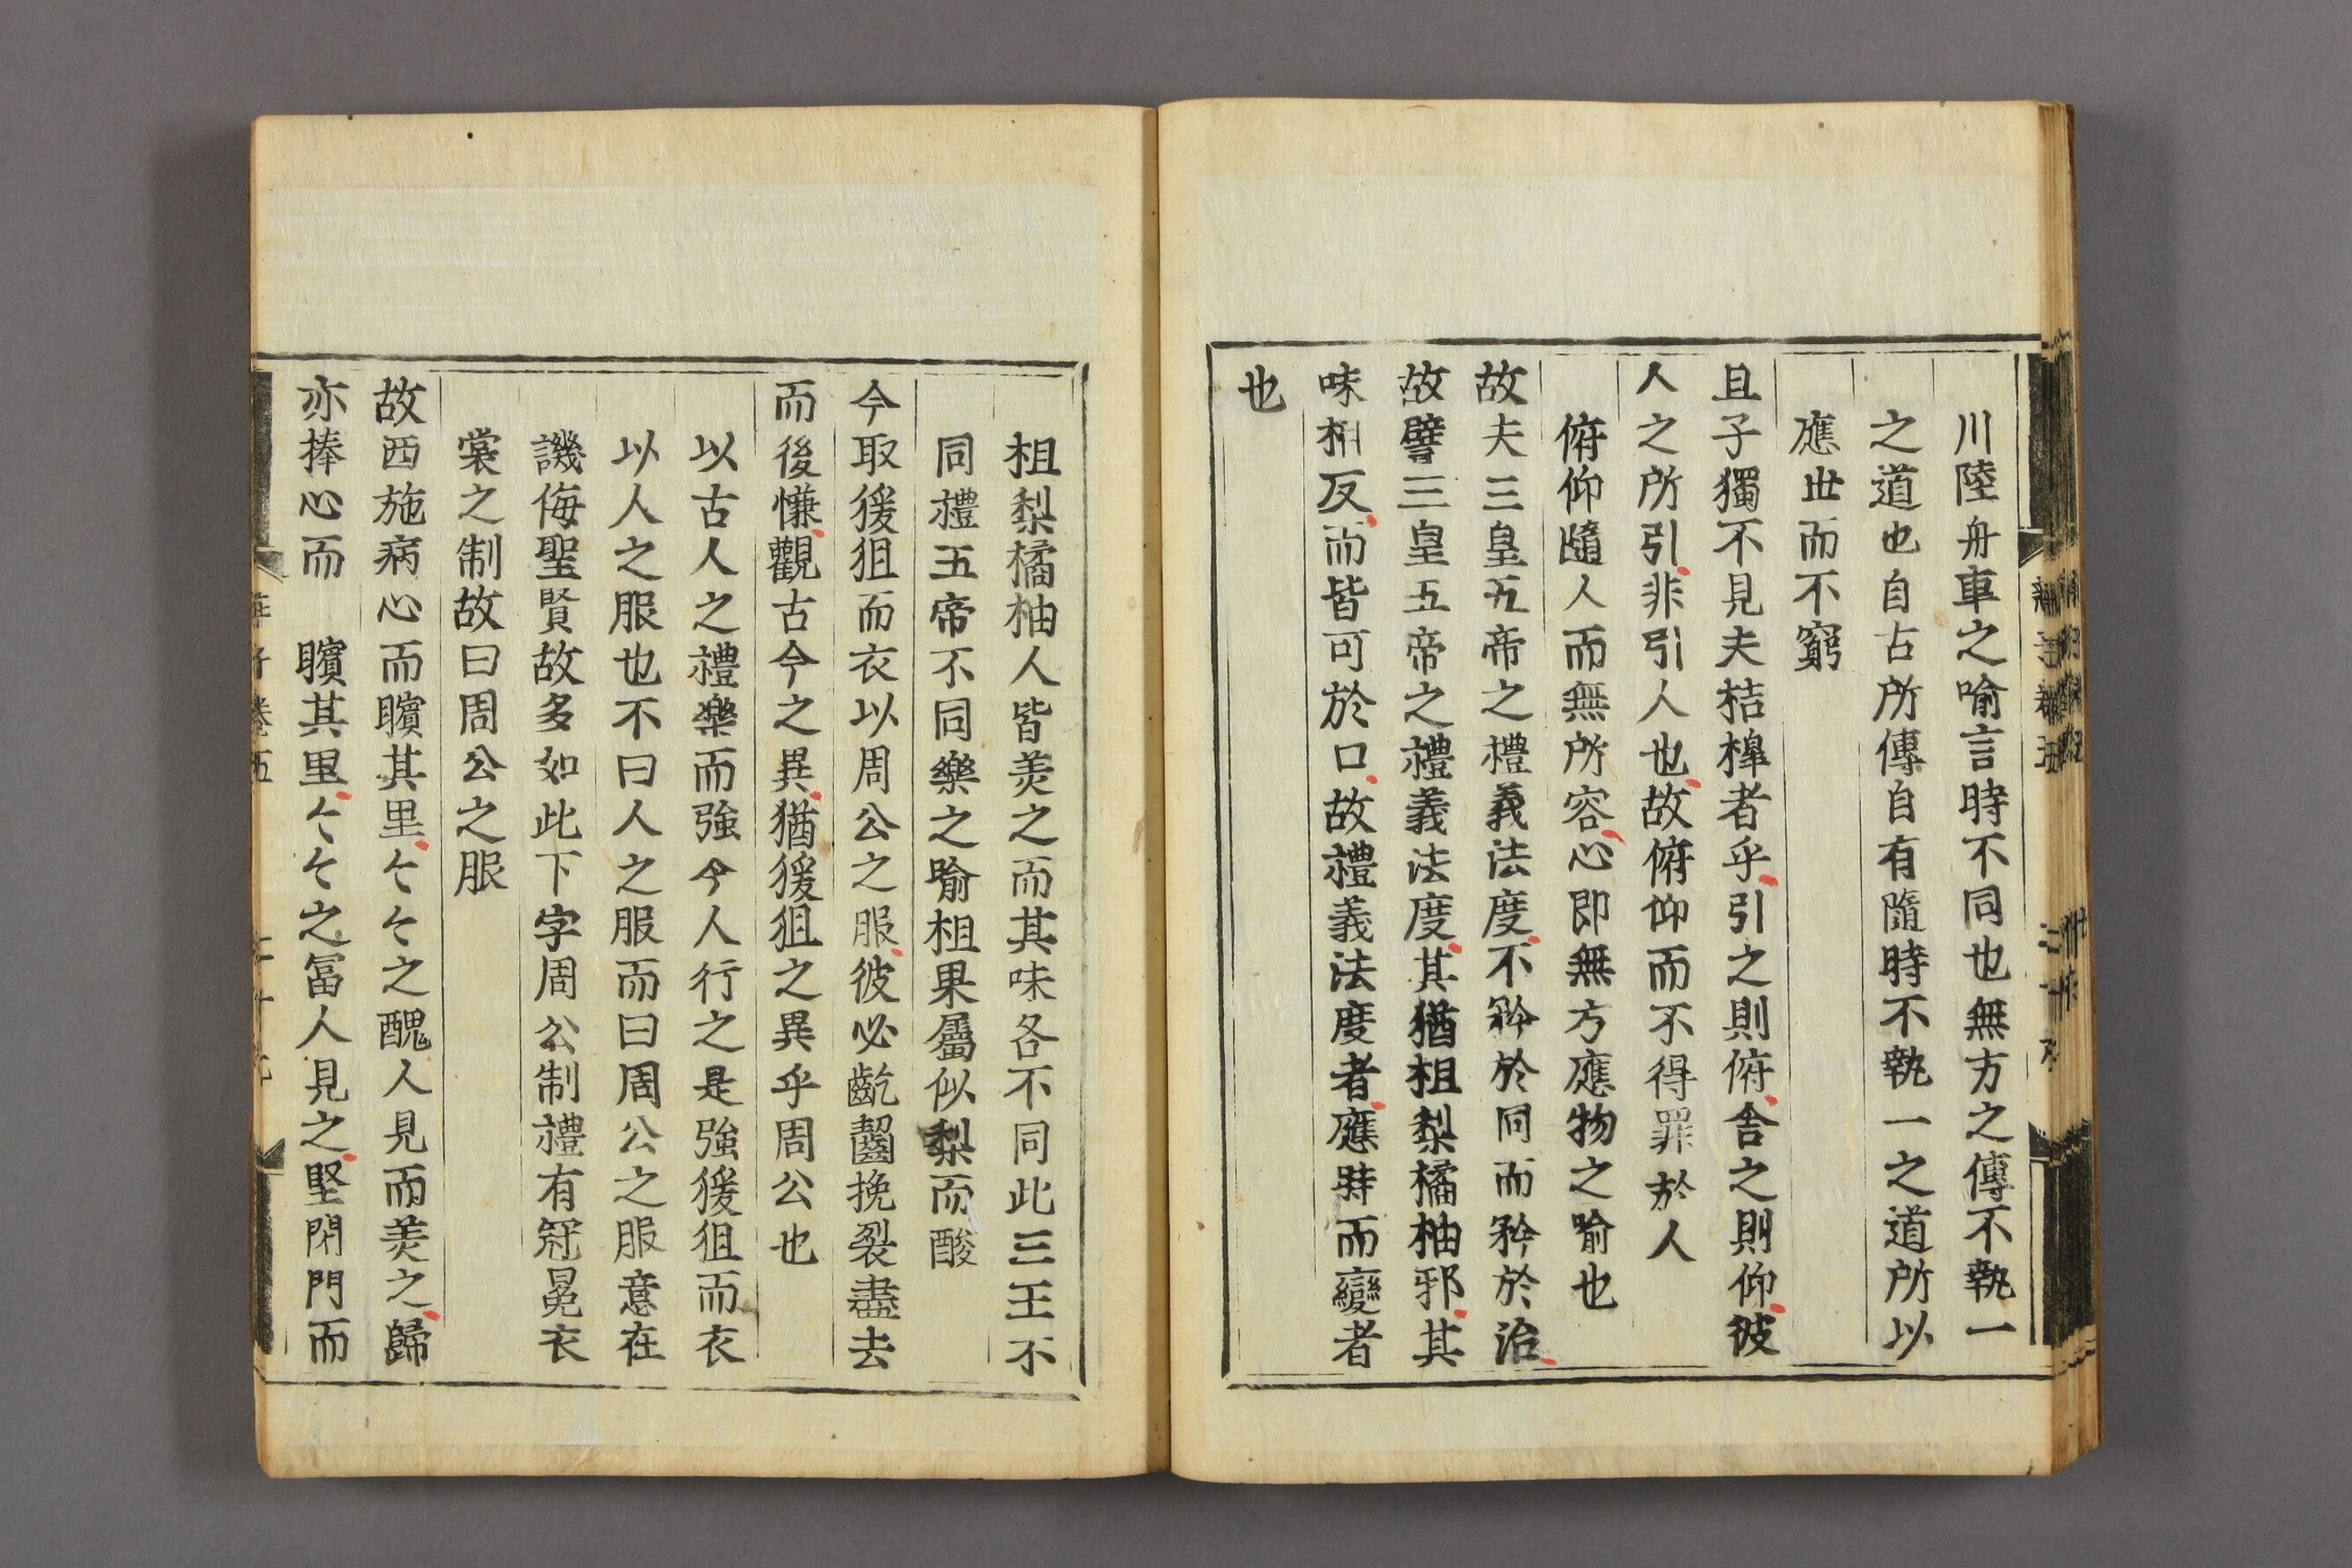 川陸舟車之喻言時不同也無方之傳不執一
之道也自古所傳自有隨時不執一之道所以
應世而不窮
且子獨不見夫桔槹者乎引之則俯舍之則仰彼
人之所引非引人也故俯仰而不得罪於人
俯仰隨人而無所容心即無方應物之喻也
故夫三皇五帝之禮義法度不矜於同而矜於治
故譬三皇五帝之禮義法度其猶柤梨橘柚邪其
味相反而皆可於口故禮義法度者應時而變者
也
柤梨橘柚人皆美之而其味各不同此三王不
同禮五帝不同樂之喻柤果屬似梨而酸
今取猨狙而衣以周公之服彼必齕齧挽裂盡去
而後慊觀古今之異猶猨狙之異乎周公也
以古人之禮樂而強今人行之是強猨狙而衣
以人之服也不曰人之服而曰周公之服意在
譏侮聖賢故多如此下字周公制禮有冠冕衣
裳之制故曰周公之服
故西施病心而矉其里々々之醜人見而美之歸
亦捧心而 矉其里々々之冨人見之堅閉門而
莊子卷五